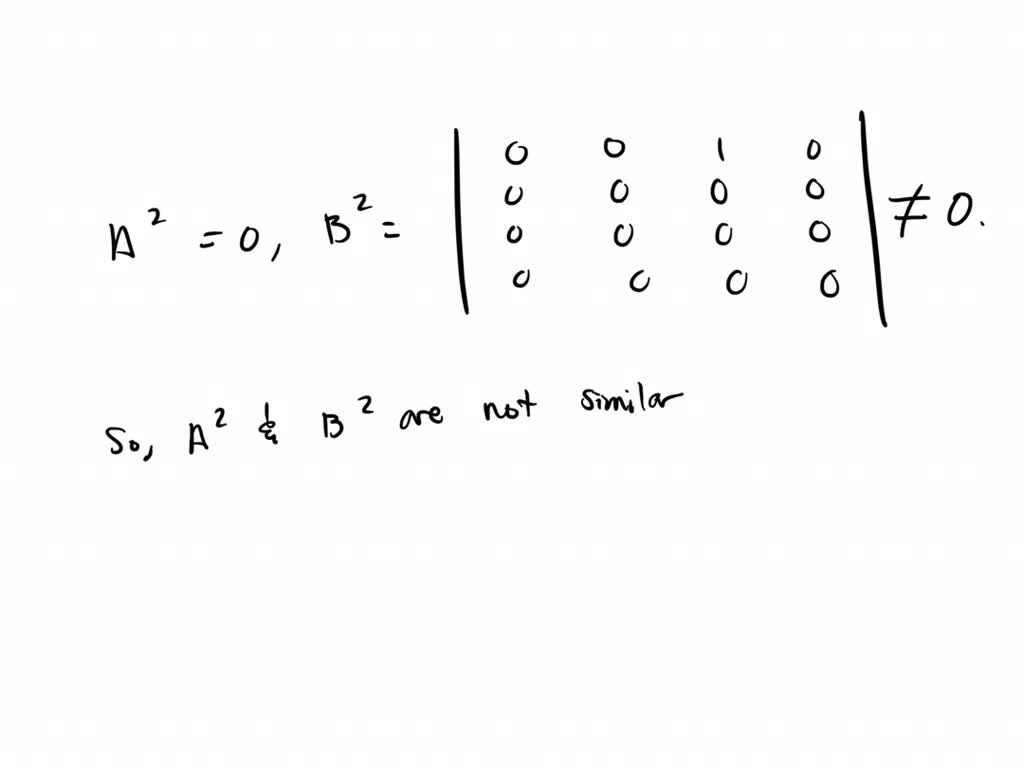 0 0 1 0
A² = 0, B² = | 0 0 0 0 | ≠ 0.
0 0 0 0
0 0 0 0
So, A² & B² are not similar